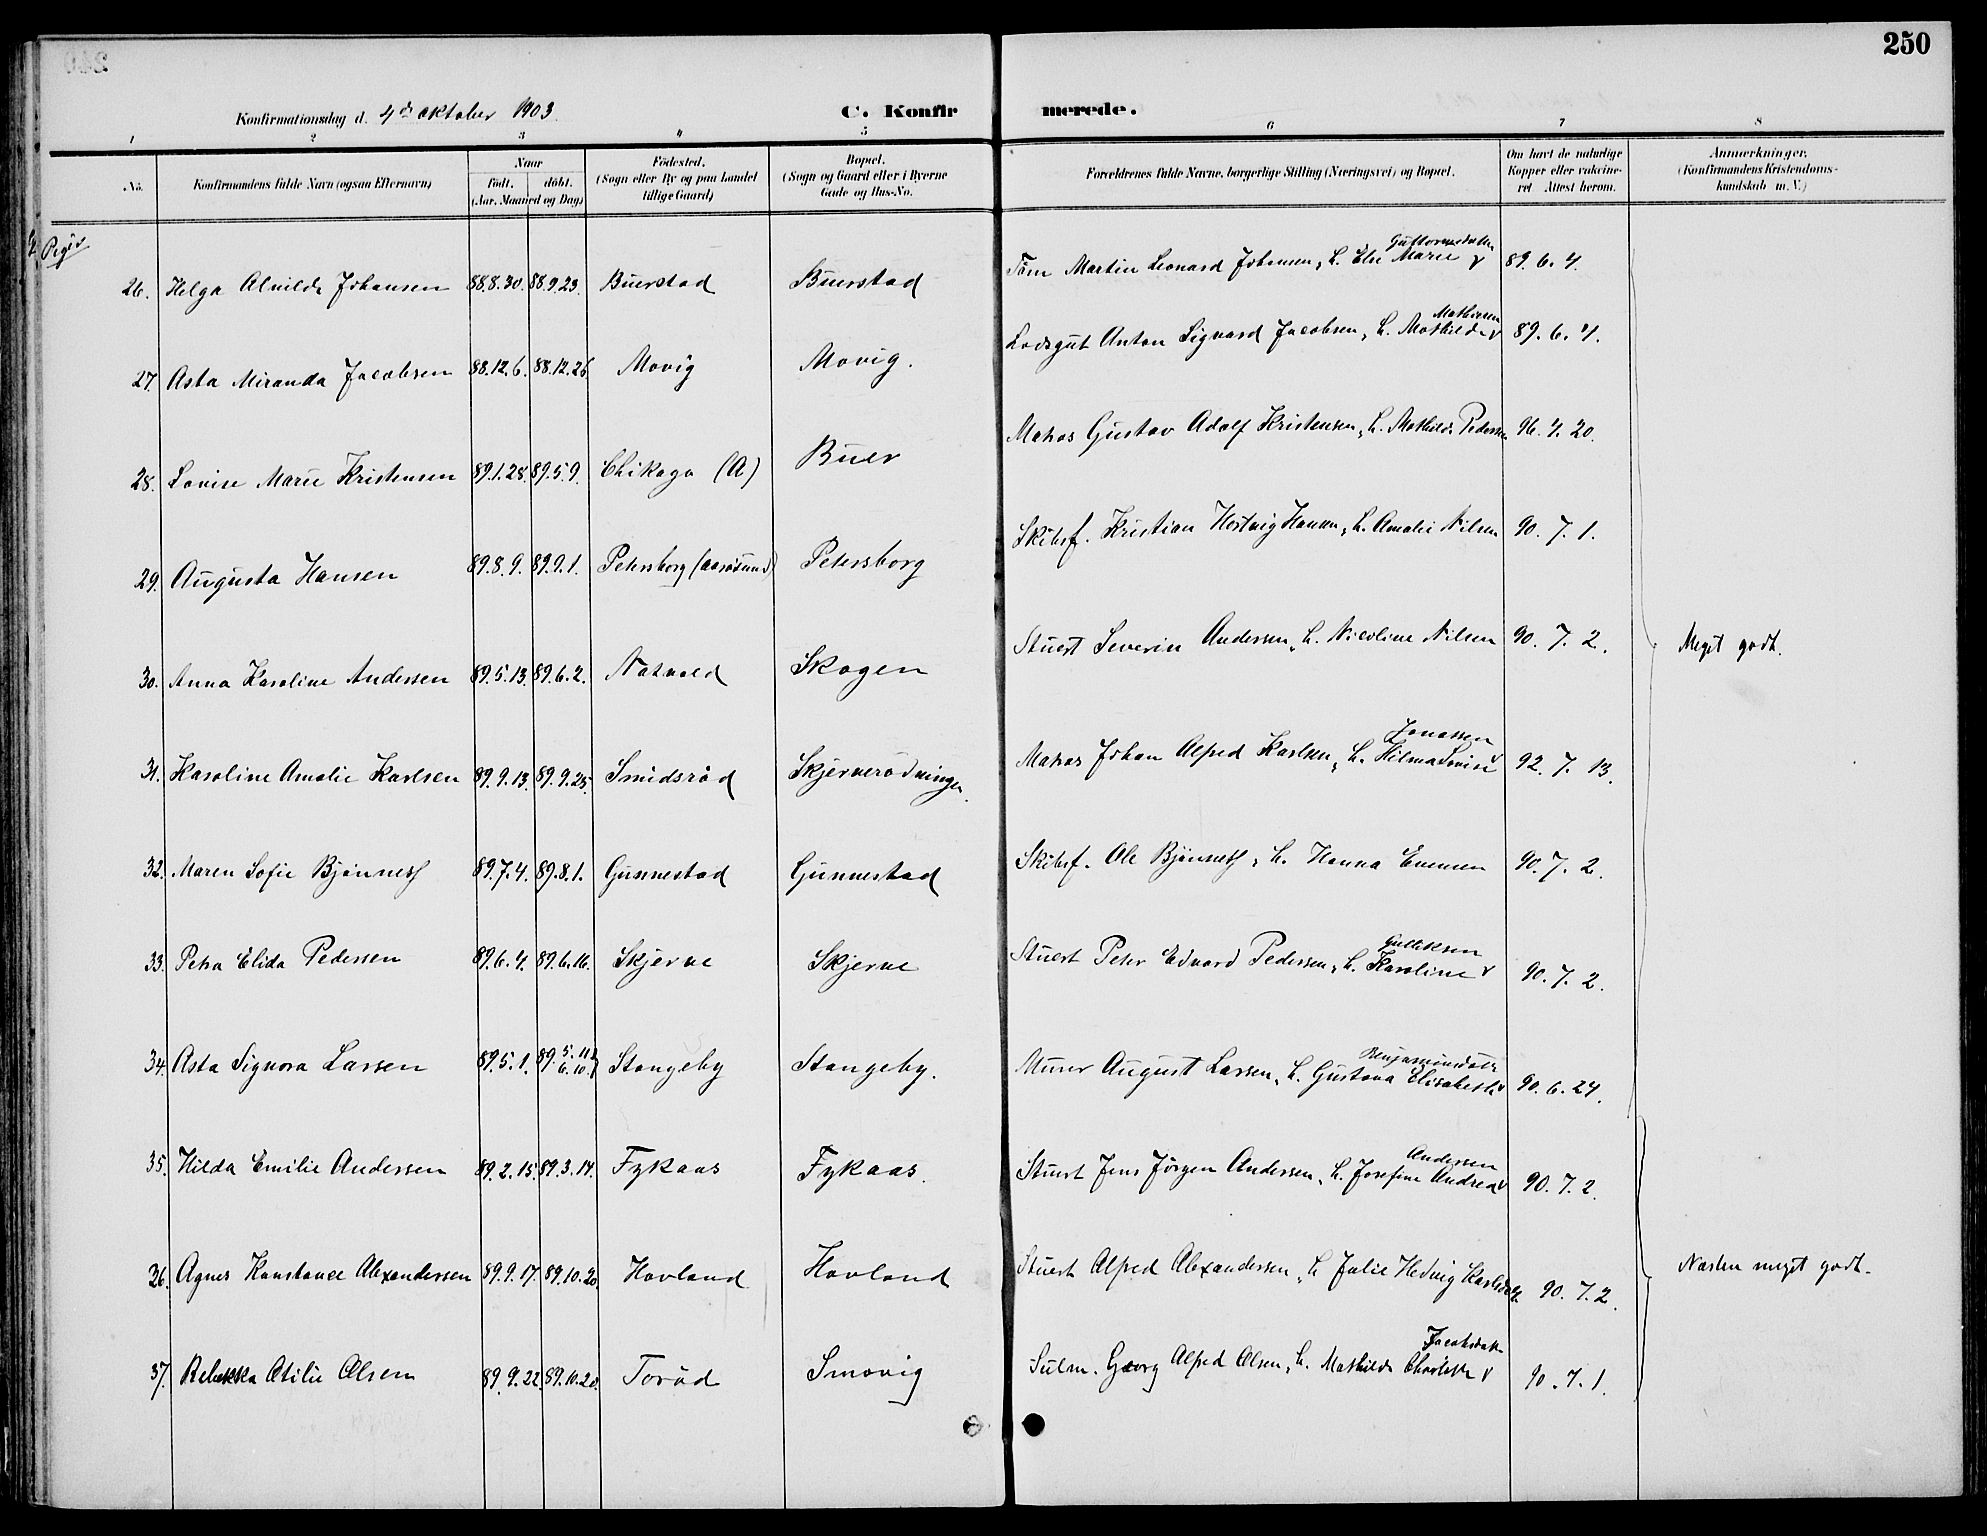 250
Konfirmationsdag d. 4de oktober 1903.
C. Konfirmerede.
1 2 3 4 5 6 7 8
No. Konfirmandens fulde Navn (ogsaa Efternavn) Naar født. døbt. (Aar, Maaned og Dag) Fødested. (Sogn eller By og paa Landet tillige Gaard) Bopæl. (Sogn og Gaard eller i Byerne Gade og Hus-No. Forældrenes fulde Navne, borgerlige Stilling (Næringsvei) og Bopæl. Om havt de naturlige Kopper eller vakcineret Attest herom. Anmærkninger. (Konfirmandens Kristendomskundskab m. V.)
Piger
26. Helga Alvilde Johansen 88.8.30. 88.9.23. Buerstad Buerstad Tøm Martin Leonard Johansen, h. Else Marie Guttormsdatter 89.6.4.
27. Asta Miranda Jacobsen 88.12.6. 88.12.26 Movig Movig. Lodsgut Anton Sigvard Jacobsen, h. Mathilde Mathisen 89.6.4.
28. Lovise Marie Kristensen 89.1.28. 89.5.9. Chikago (A) Buer Matros Gustav Adolf Kristensen, h. Mathilde Pedersen 96.4.20.
29. Augusta Hansen 89.8.9. 89.9.1. Petersborg (Aarøsund) Petersborg Skibsf. Kristian Hartvig Hansen, h. Amalie Nilsen 90.7.1.
30. Anna Karoline Andersen 89.5.13. 89.6.2. Natvold Skogen Stuert Severin Andersen, h. Nicoline Nilsen 90.7.2. Meget godt.
31. Karoline Amalie Karlsen 89.9.13. 89.9.25. Smidsrød Skjernerødningen. Matros Johan Alfred Karlsen, h. Hilma Lovise Jonassen 92.7.13.
32. Maren Sofie Bjønness 89.7.4. 89.8.1. Gunnestad Gunnestad Skibsf. Ole Bjønness, h. Hanna Evensen 90.7.2.
33. Petra Elida Pedersen 89.6.4. 89.6.16. Skjerve Skjerve Stuert Peter Edvard Pedersen, h. Karoline Gulliksen 90.7.2.
34. Asta Signora Larsen 89.5.1. 89.5.11 6.10. Stangeby Stangeby. Murer August Larsen, h. Gustava Elisabeth Benjaminsdatr 90.6.24.
35. Hilda Emilie Andersen 89.2.15. 89.3.14. Fykaas Fykaas. Stuert Jens Jørgen Andersen, h. Josefine Andrea Andersen 90.7.2.
36. Agnes Konstance Alexandersen 89.9.17. 89.10.20. Hovland Hovland Stuert Alfred Alexandersen, h. Julie Hedvig Karlsdatr 90.7.2. Næsten meget godt.
37. Rebekka Otilie Olsen 89.9.22. 89.10.20. Torød Smovig Sulm. Georg Alfred Olsen, h. Mathilde Charlotte Jacobsdatter 90.7.1.